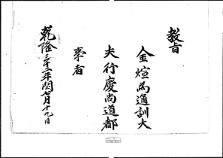 敎旨
金煊爲通訓大
夫行慶尚道都
事者
乾隆三十二年閏七月十九日